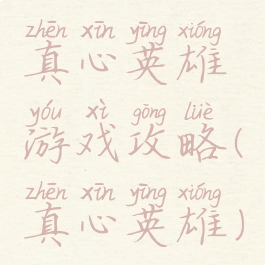 zhēn xīn yīng xióng
真心英雄
yóu xì gōng lüè
游戏攻略(
zhēn xīn yīng xióng
真心英雄)